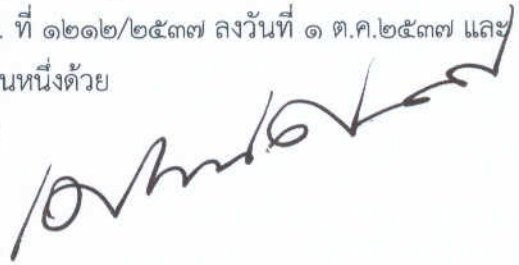 . ที่ ๑๒๑๒/๒๕๓๗ ลงวันที่ ๑ ต.ค.๒๕๓๗ และ
นหนึ่งด้วย